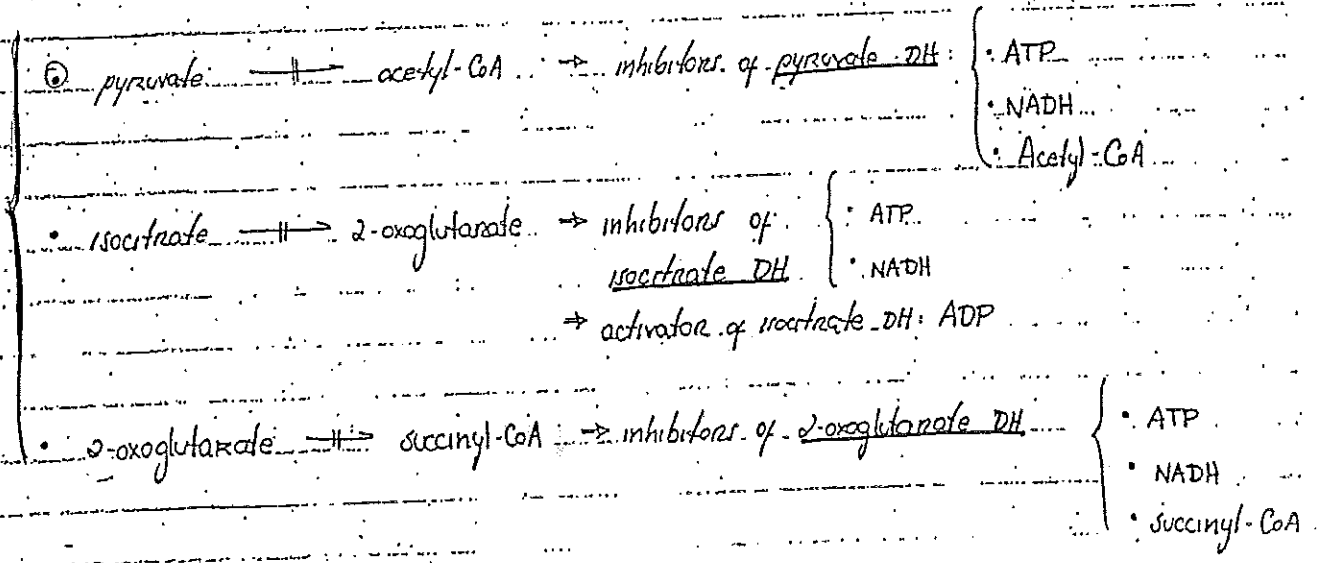 • pyruvate —||→ acetyl-CoA → inhibitors of pyruvate DH: • ATP
• NADH
• Acetyl-CoA
• isocitrate —||→ 2-oxoglutarate → inhibitors of isocitrate DH • ATP
• NADH
→ activator of isocitrate DH: ADP
• 2-oxoglutarate —||→ succinyl-CoA → inhibitors of 2-oxoglutarate DH • ATP
• NADH
• succinyl-CoA